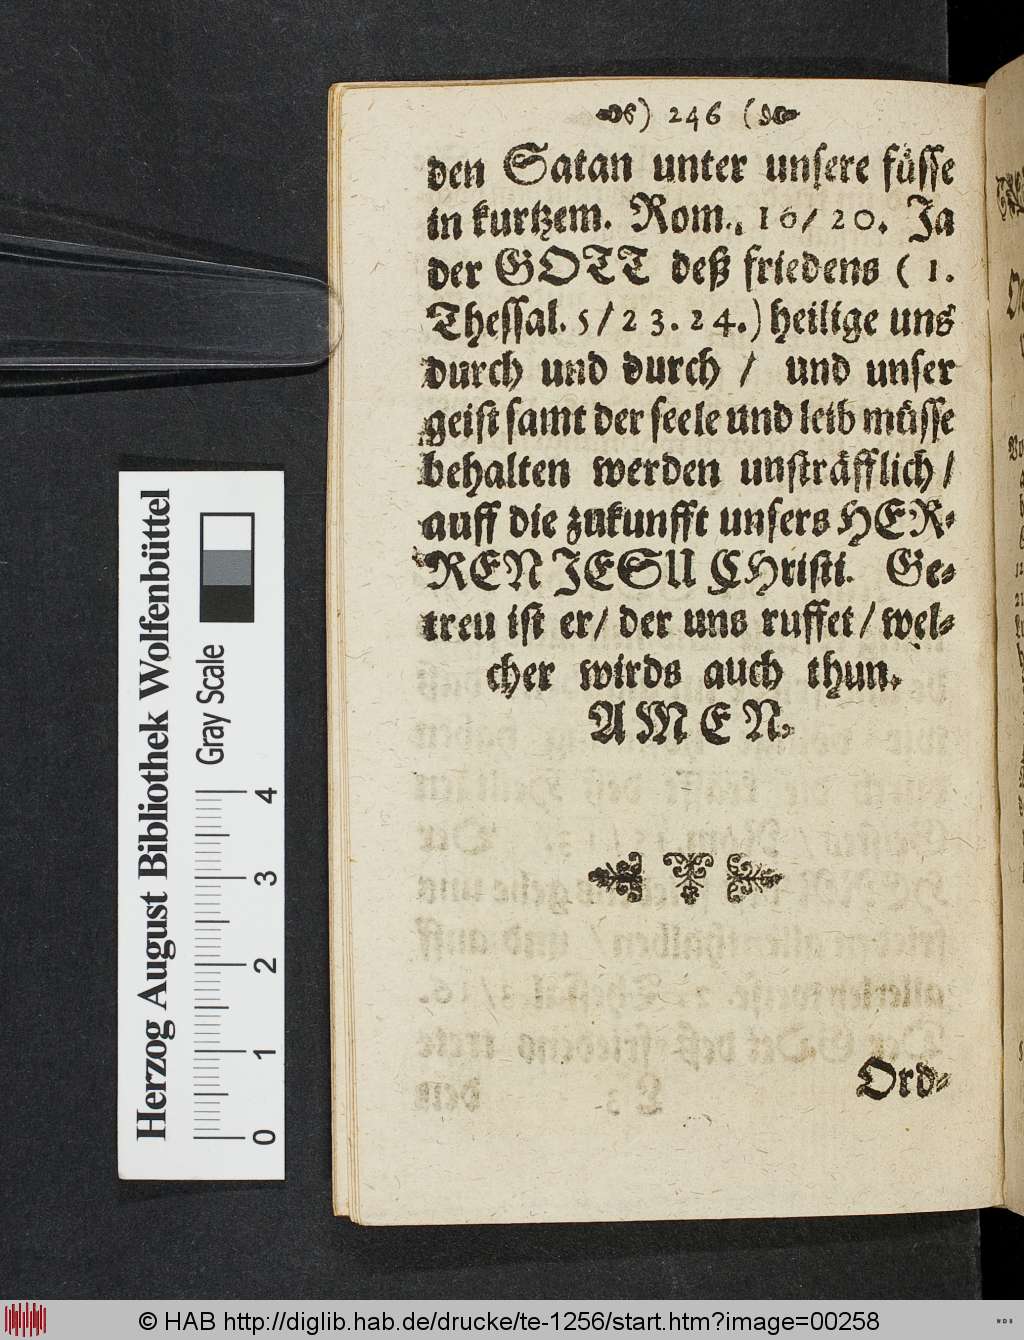 ) 246 (
den Satan unter unsere füsse
in kurtzem. Rom. 16/20. Ja
der GOTT deß friedens (1.
Thessal. 5/23.24.) heilige uns
durch und durch / und unser
geist samt der seele und leib müsse
behalten werden unsträfflich/
auff die zukunfft unsers HER-
REN JESU CHristi. Ge-
treu ist er/ der uns ruffet/ wel-
cher wirds auch thun.
AMEN.
Ord-
Herzog August Bibliothek Wolfenbüttel
Gray Scale
0 1 2 3 4
© HAB http://diglib.hab.de/drucke/te-1256/start.htm?image=00258